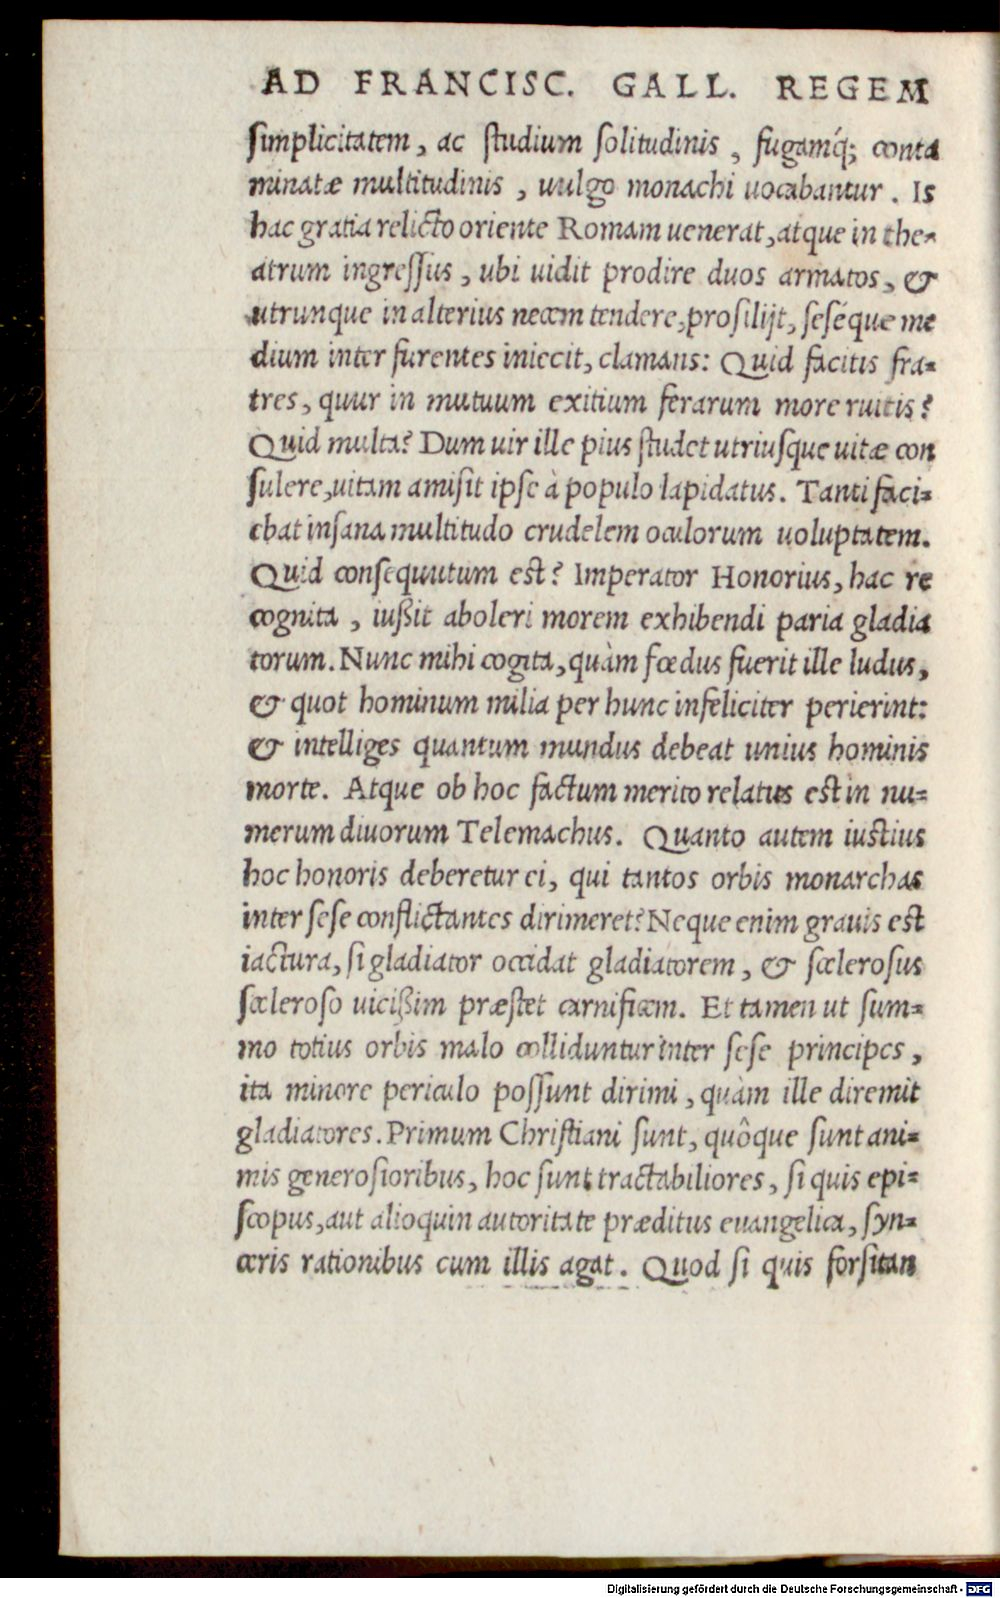 AD FRANCISC. GALL. REGEM
simplicitatem, ac studium solitudinis, fugamq́; conta
minatæ multitudinis, uulgo monachi uocabantur. Is
hac gratia relicto oriente Romam uenerat, atque in the-
atrum ingressus, ubi uidit prodire duos armatos, &
utrunque in alterius necem tendere, prosilijt, seséque me
dium inter furentes iniecit, clamans: Quid facitis fra-
tres, quur in mutuum exitium ferarum more ruitis?
Quid multa? Dum uir ille pius studet utriusque uitæ con
sulere, uitam amisit ipse à populo lapidatus. Tanti faci-
ebat insana multitudo crudelem oculorum uoluptatem.
Quid consequutum est? Imperator Honorius, hac re
cognita, iußit aboleri morem exhibendi paria gladia
torum. Nunc mihi cogita, quàm fœdus fuerit ille ludus,
& quot hominum milia per hunc infeliciter perierint:
& intelliges quantum mundus debeat unius hominis
morte. Atque ob hoc factum merito relatus est in nu-
merum diuorum Telemachus. Quanto autem iustius
hoc honoris deberetur ei, qui tantos orbis monarchas
inter sese conflictantes dirimeret? Neque enim grauis est
iactura, si gladiator occidat gladiatorem, & scelerosus
sceleroso uicißim præstet carnificem. Et tamen ut sum-
mo totius orbis malo colliduntur inter sese principes,
ita minore periculo possunt dirimi, quàm ille diremit
gladiatores. Primum Christiani sunt, quôque sunt ani-
mis generosioribus, hoc sunt tractabiliores, si quis epi-
scopus, aut alioquin autoritate præditus euangelica, syn-
ceris rationibus cum illis agat. Quod si quis forsitan
Digitalisierung gefördert durch die Deutsche Forschungsgemeinschaft - DFG